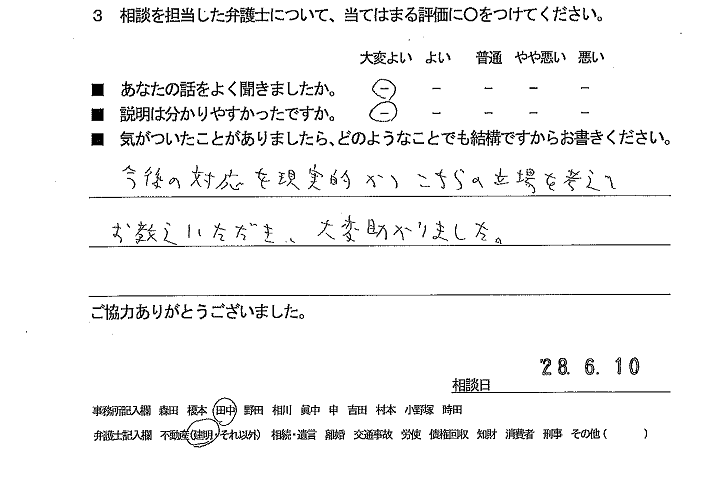 3 相談を担当した弁護士について、当てはまる評価に○をつけてください。
大変よい よい 普通 やや悪い 悪い
■ あなたの話をよく聞きましたか。 － － － － －
■ 説明は分かりやすかったですか。 － － － － －
■ 気がついたことがありましたら、どのようなことでも結構ですからお書きください。
今後の対応を現実的かつこちらの立場を考えて
お教えいただき、大変助かりました。
ご協力ありがとうございました。
相談日 '28.6.10
事務所記入欄 森田 榎本 田中 野田 相川 眞中 申 吉田 村本 小野塚 時田
弁護士記入欄 不動産(建明・それ以外) 相続・遺言 離婚 交通事故 労使 債権回収 知財 消費者 刑事 その他( )